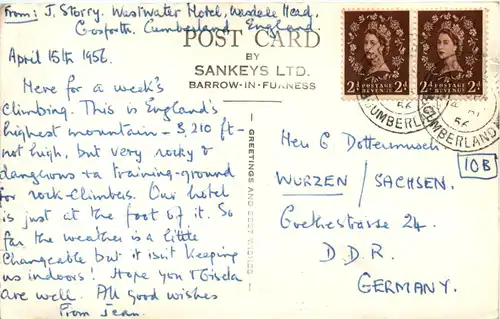 From: J. Storry. Westwater Hotel, Wasdale Head,
Gosforth, Cumberland, England.
POST CARD
BY
SANKEYS LTD.
BARROW-IN-FURNESS
April 15th 1956.
Here for a week's
Climbing. This is England's
highest mountain - 3,210 ft -
not high, but very rocky &
dangerous - a training-ground
for rock-climbers. Our hotel
is just at the foot of it. So
far the weather is a little
changeable but it isn't keeping
us indoors! Hope you & Gisela
are well. All good wishes
From Jean.
GREETINGS AND BEST WISHES
POSTAGE
REVENUE
2d
POSTAGE
REVENUE
2d
CUMBERLAND
CUMBERLAND
Herr G Dottermusch
10B
WURZEN / SACHSEN.
Goethestrasse 24.
D. D. R.
GERMANY.